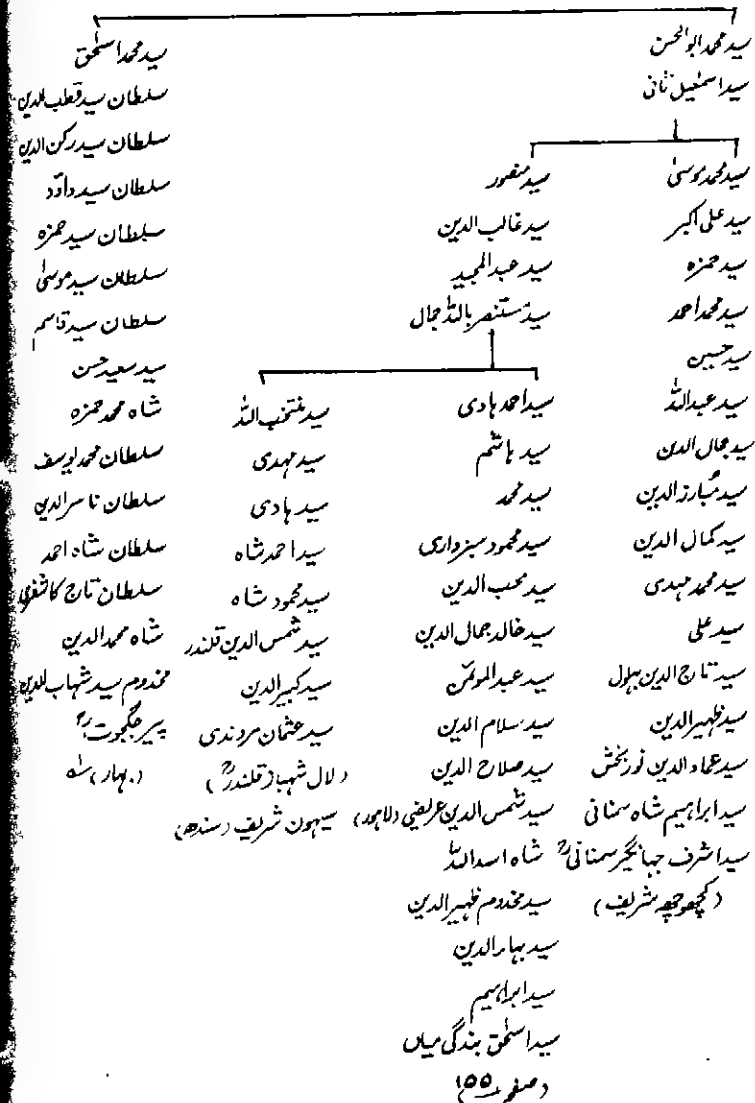 سید محمد ابوالحسن
سید اسمٰعیل ثانی
سید محمد موسیٰ
سید علی اکبر
سید حمزہ
سید محمد احمد
سید حسین
سید عبداللہ
سید جمال الدین
سید مبارز الدین
سید کمال الدین
سید محمد مہدی
سید علی
سید تاج الدین بہلول
سید ظہیر الدین
سید عماد الدین نور بخش
سید ابراہیم شاہ سمنانی
سید اشرف جہانگیر سمنانیؒ
(کچھوچھہ شریف)
سید منصور
سید غالب الدین
سید عبدالمجید
سید مستنصر باللہ جمال
سید احمد ہادی
سید ہاشم
سید محمد
سید محمود سبزواری
سید محب الدین
سید خالد جمال الدین
سید عبدالمومن
سید سلام الدین
سید صلاح الدین
سید شمس الدین عریضی (لاہور)
شاہ اسداللہ
سید مخدوم ظہیر الدین
سید بہار الدین
سید ابراہیم
سید اسحٰق بندگی میاں
(صفحہ ۱۵۵)
سید منتخب اللہ
سید مہدی
سید ہادی
سید احمد شاہ
سید محمود شاہ
سید شمس الدین قلندر
سید کبیر الدین
سید عثمان مروندی
(لال شہباز قلندرؒ)
سیہون شریف (سندھ)
سید محمد اسحٰق
سلطان سید قطب الدین
سلطان سید رکن الدین
سلطان سید داؤد
سلطان سید حمزہ
سلطان سید موسیٰ
سلطان سید قاسم
سید سعید حسن
شاہ محمد حمزہ
سلطان محمد یوسف
سلطان ناسرالدین
سلطان شاہ احمد
سلطان تاج کاشغری
شاہ محمد الدین
مخدوم سید شہاب الدین
پیر جگجوتؒ
(بہار)